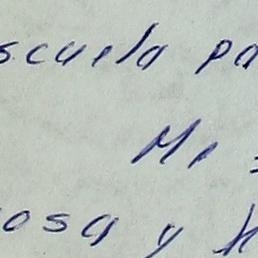 scuela pa
Mi s
osa y h